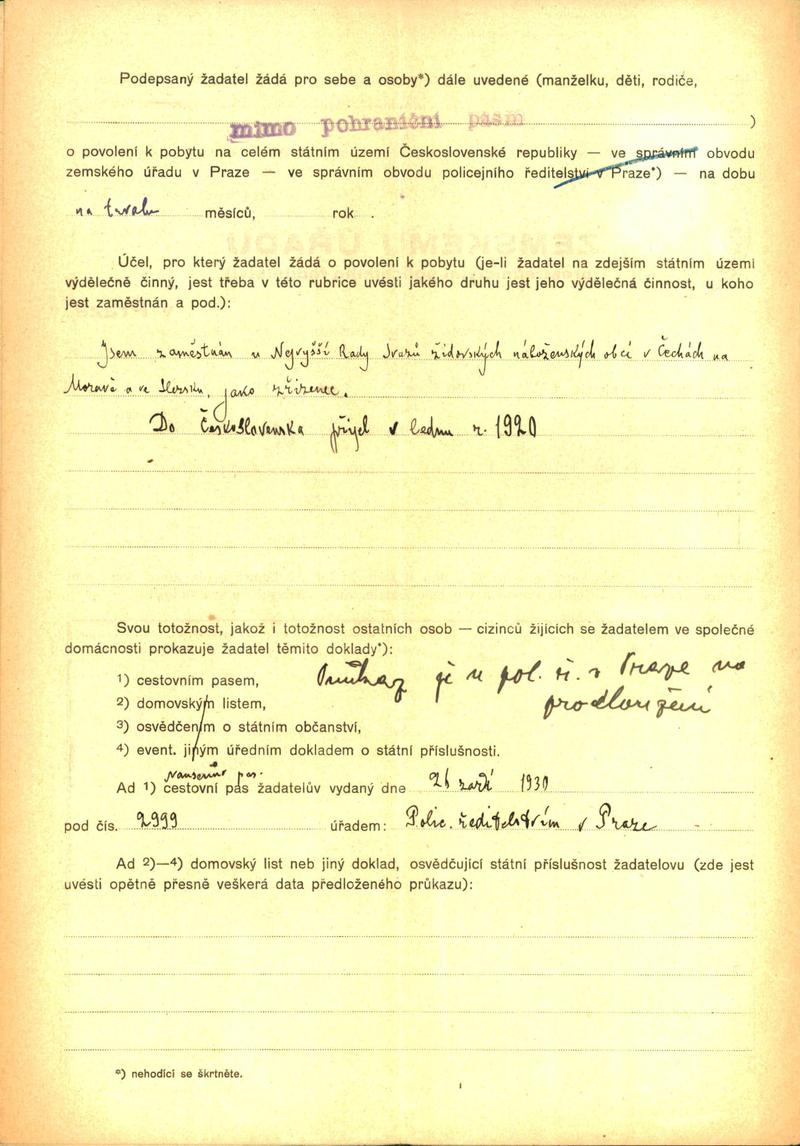 Podepsaný žadatel žádá pro sebe a osoby*) dále uvedené (manželku, děti, rodiče,
mimo pohraniční pásm )
o povolení k pobytu na celém státním území Československé republiky — ve správním obvodu
zemského úřadu v Praze — ve správním obvodu policejního ředitelství v Praze*) — na dobu
na trvalo měsíců, rok .
Účel, pro který žadatel žádá o povolení k pobytu (je-li žadatel na zdejším státním území
výdělečně činný, jest třeba v této rubrice uvésti jakého druhu jest jeho výdělečná činnost, u koho
jest zaměstnán a pod.):
Jsem zaměstnán u Nejvyšší Rady Svazů židovských náboženských obcí v Čechách na
Moravě a ve Slezsku, jako zřízenec.
Do Československa přijel v lednu r. 1920
Svou totožnost, jakož i totožnost ostatních osob — cizinců žijících se žadatelem ve společné
domácnosti prokazuje žadatel těmito doklady*):
1) cestovním pasem, Průkaz je u pol. ř. v Praze na
2) domovským listem, prodloužení
3) osvědčením o státním občanství,
4) event. jiným úředním dokladem o státní příslušnosti.
Nansenův pas.
Ad 1) cestovní pas žadatelův vydaný dne 26 září 1930
pod čís. 2999 úřadem: Polic. ředitelstvím v Praze
Ad 2)—4) domovský list neb jiný doklad, osvědčující státní příslušnost žadatelovu (zde jest
uvésti opětně přesně veškerá data předloženého průkazu):
*) nehodící se škrtněte.